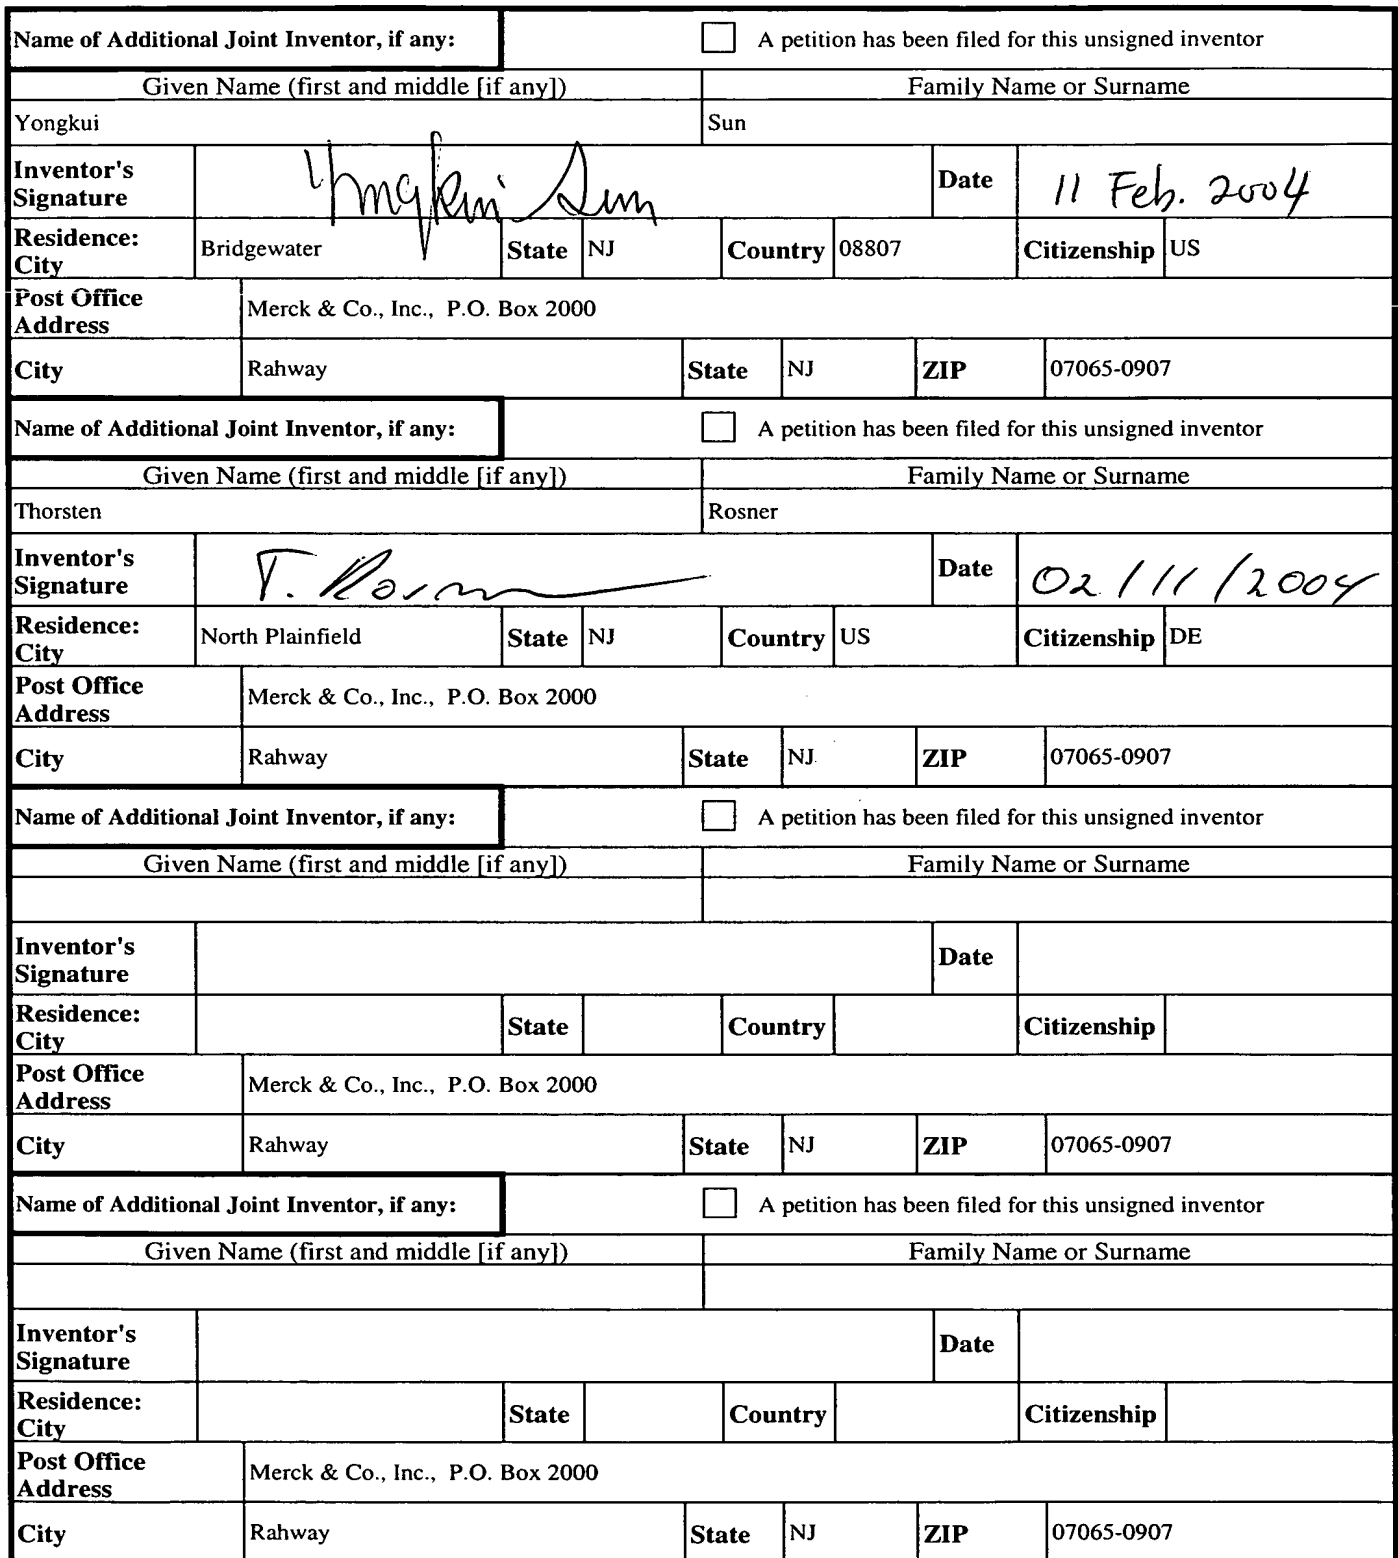 Name of Additional Joint Inventor, if any: A petition has been filed for this unsigned inventor
Given Name (first and middle [if any]) Family Name or Surname
Yongkui Sun
Inventor's Signature Yongkui Sun Date 11 Feb. 2004
Residence: City Bridgewater State NJ Country 08807 Citizenship US
Post Office Address Merck & Co., Inc., P.O. Box 2000
City Rahway State NJ ZIP 07065-0907
Name of Additional Joint Inventor, if any: A petition has been filed for this unsigned inventor
Given Name (first and middle [if any]) Family Name or Surname
Thorsten Rosner
Inventor's Signature T. Rosner Date 02/11/2004
Residence: City North Plainfield State NJ Country US Citizenship DE
Post Office Address Merck & Co., Inc., P.O. Box 2000
City Rahway State NJ ZIP 07065-0907
Name of Additional Joint Inventor, if any: A petition has been filed for this unsigned inventor
Given Name (first and middle [if any]) Family Name or Surname
Inventor's Signature Date
Residence: City State Country Citizenship
Post Office Address Merck & Co., Inc., P.O. Box 2000
City Rahway State NJ ZIP 07065-0907
Name of Additional Joint Inventor, if any: A petition has been filed for this unsigned inventor
Given Name (first and middle [if any]) Family Name or Surname
Inventor's Signature Date
Residence: City State Country Citizenship
Post Office Address Merck & Co., Inc., P.O. Box 2000
City Rahway State NJ ZIP 07065-0907